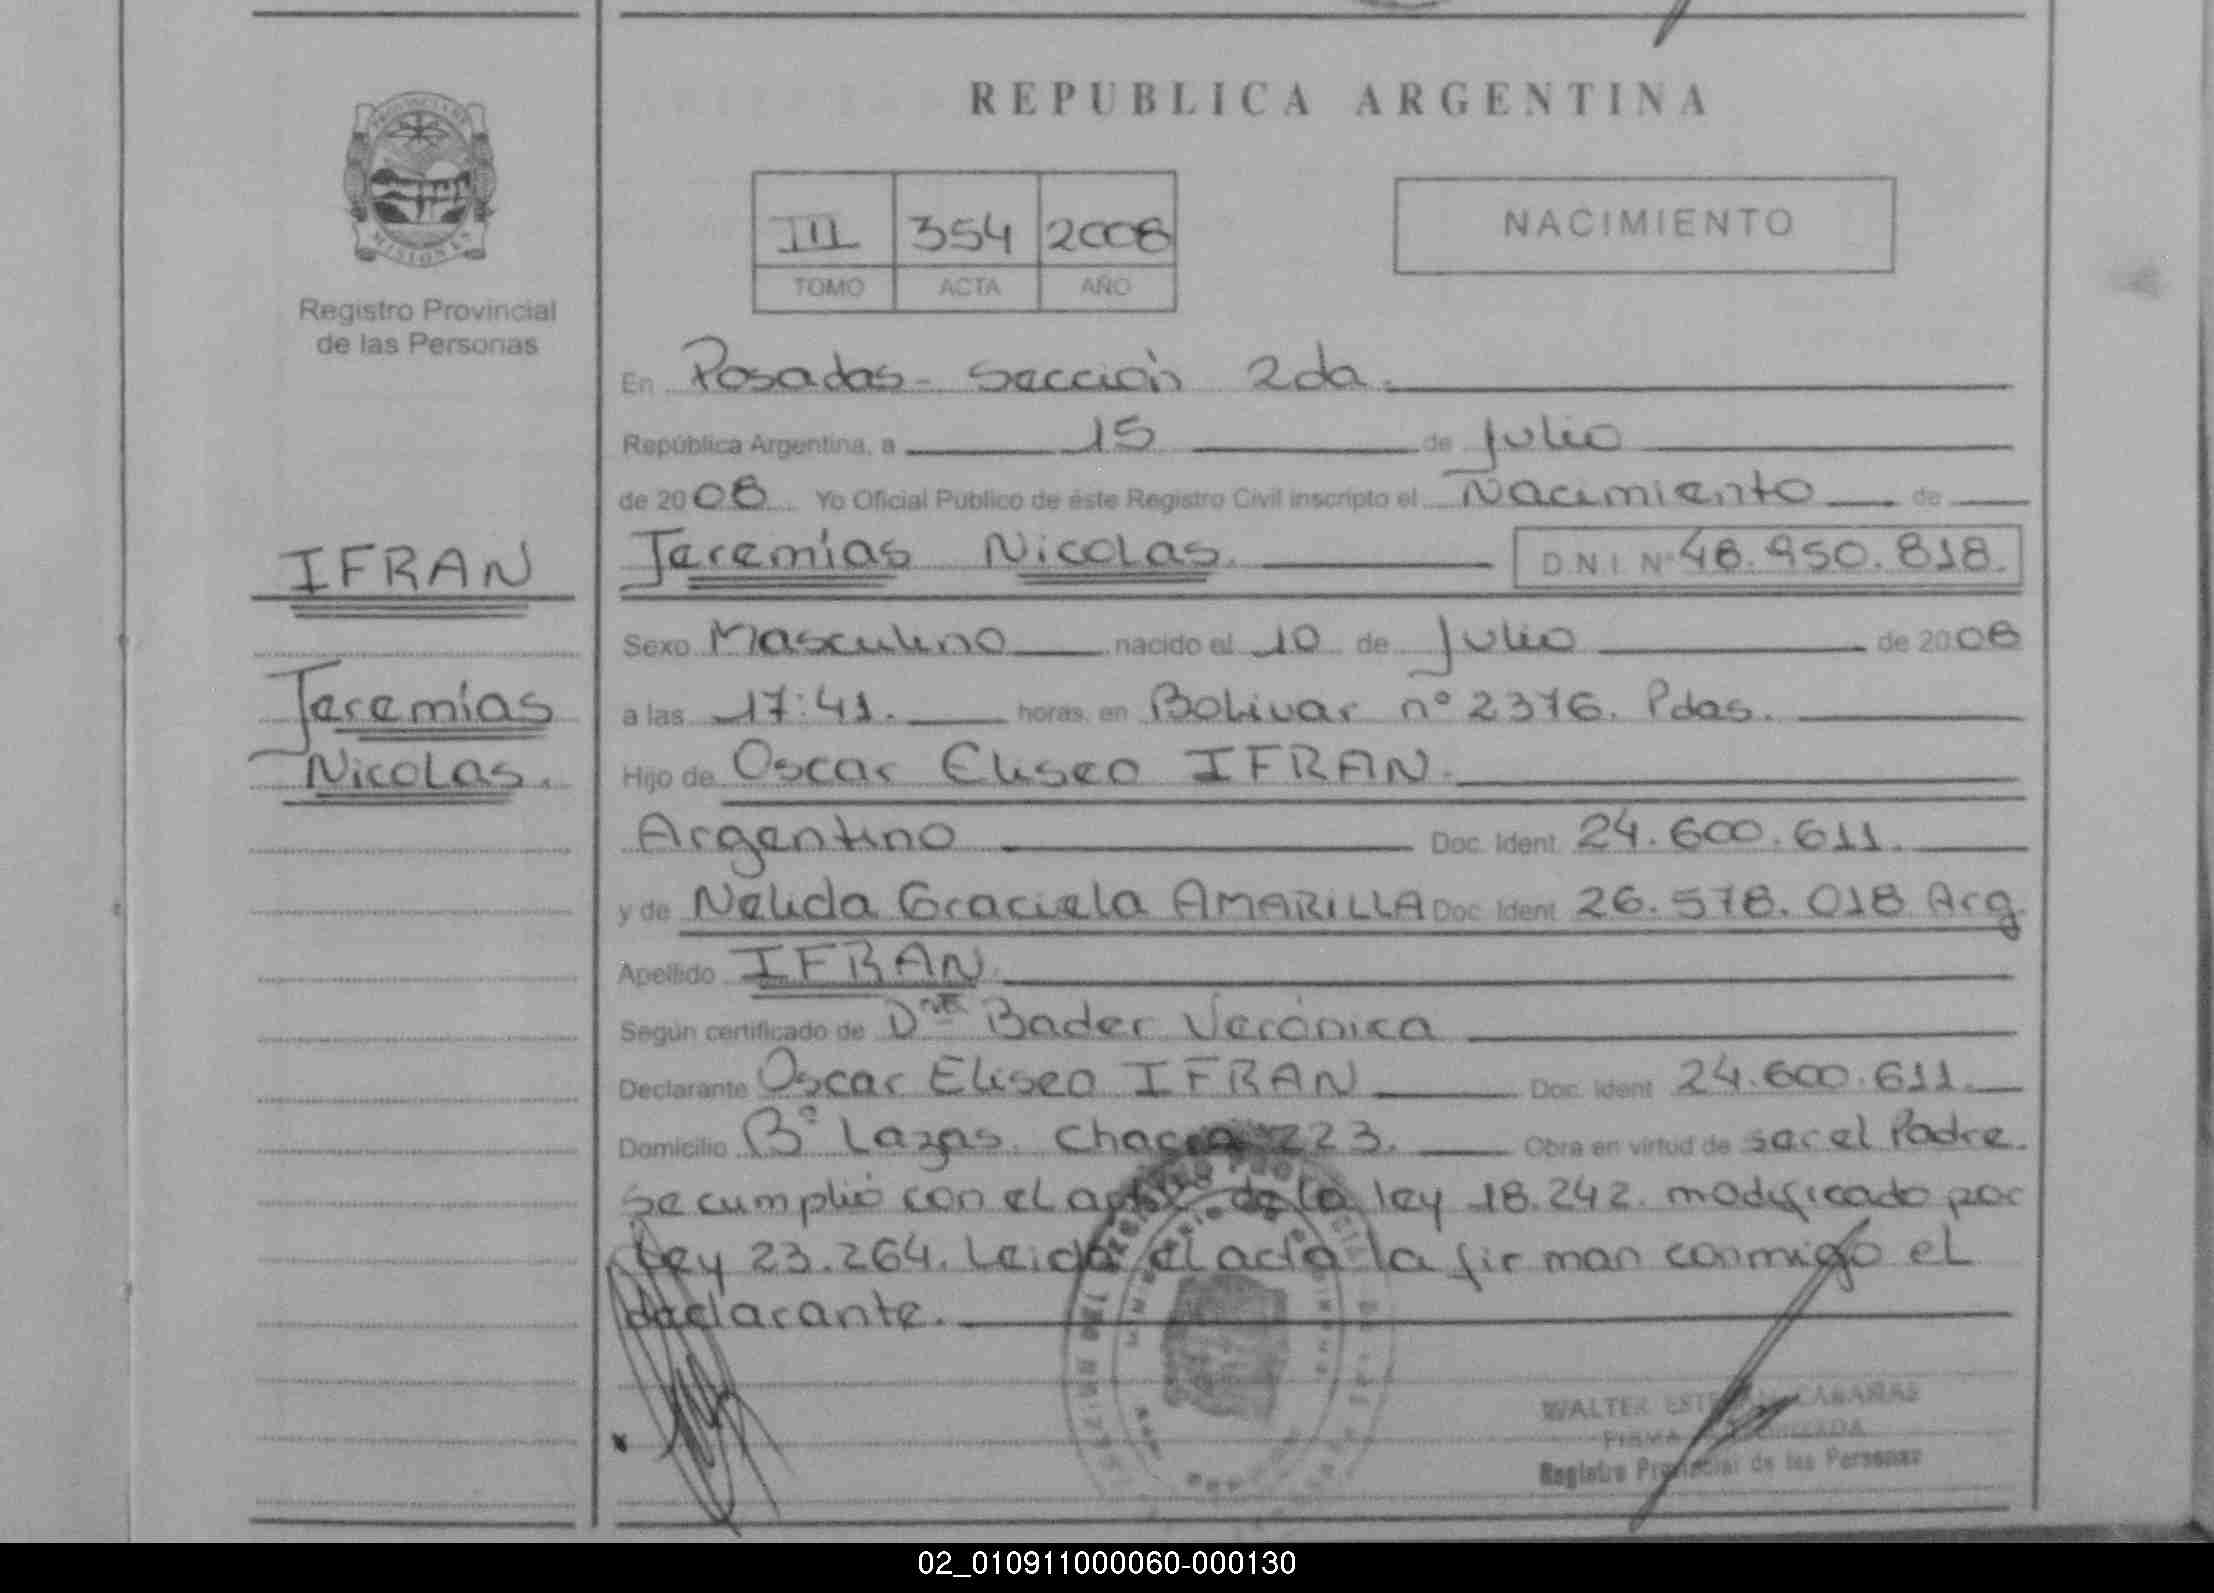 REPUBLICA ARGENTINA
PROVINCIA DE
MISIONES
Registro Provincial
de las Personas
III 354 2008
TOMO ACTA AÑO
NACIMIENTO
En Posadas - Sección 2da.
República Argentina, a 15 de Julio
de 2008 Yo Oficial Publico de éste Registro Civil inscripto el Nacimiento de
IFRAN
Jeremías Nicolas. D.N.I. Nº 48.950.818.
Sexo Masculino nacido el 10 de Julio de 2008
Jeremías
Nicolas.
a las 17:41. horas, en Bolivar nº 2376. Pdas.
Hijo de Oscar Eliseo IFRAN.
Argentino Doc. Ident. 24.600.611.
y de Nelida Graciela AMARILLA Doc. Ident. 26.578.018 Arg.
Apellido IFRAN.
Según certificado de Dra Bader Verónica
Declarante Oscar Eliseo IFRAN Doc. Ident. 24.600.611.
Domicilio Bº Lazos. Chacra 223. Obra en virtud de ser el Padre.
Se cumplió con el de la ley 18.242. modificado por
Ley 23.264. Leida el acta la firman conmigo el
declarante.
WALTER CABAÑAS
FIRMA
Registro Provincial de las Personas
02_010911000060-000130